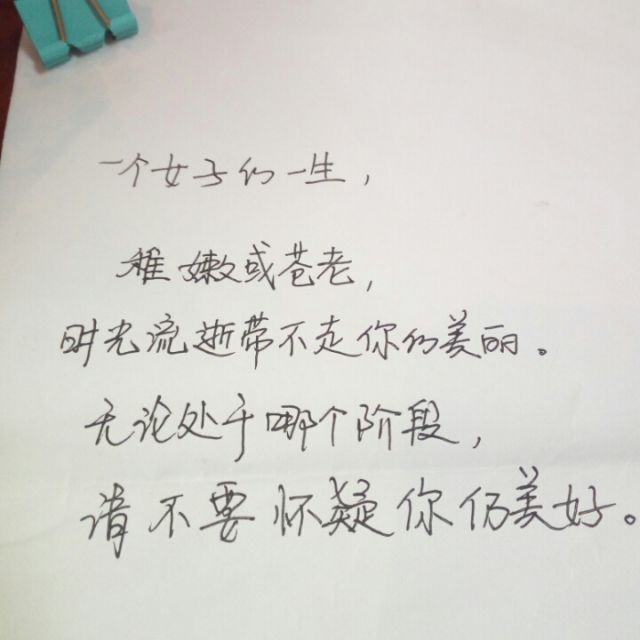 一个女子的一生，
稚嫩或苍老，
时光流逝带不走你的美丽。
无论处于哪个阶段，
请不要怀疑你仍美好。